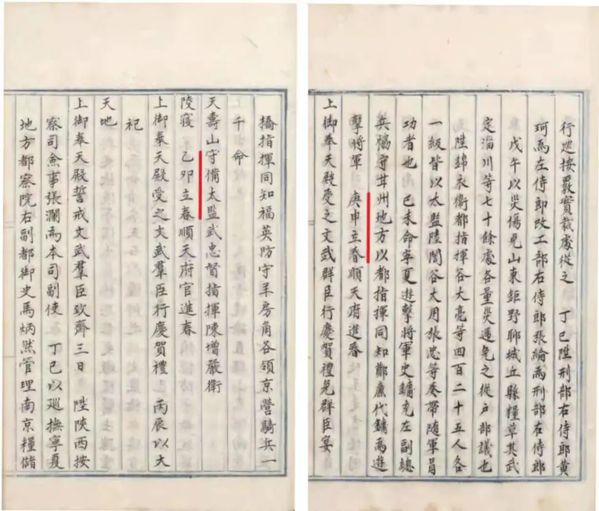 行巡按覈實裁處從之　丁巳陞刑部右侍郎黃
珂為左侍郎改工部右侍郎張綸為刑部右侍郎
戊午以災傷免山東鉅野聊城丘縣糧草其武
定淄川等七十餘處各量災遞免之從戶部議也
陞錦衣衛都指揮谷大亮等四百二十五人各
一級皆以太監陸誾谷大用張忠等奏帶隨軍有
功者也　己未命寧夏遊擊將軍史鏞充左副總
兵協守甘州地方以都指揮同知鄭廉代鏞為遊
擊將軍　庚申立春順天府進春
上御奉天殿受之文武群臣行慶賀禮免群臣宴
指揮同知福英防守羊房角各領京營騎兵一
千　命
天壽山守備太監武忠督指揮陳增嚴衛
陵寢　乙卯立春順天府官進春
上御奉天殿受之文武羣臣行慶賀禮　丙辰以大
祀
天地
上御奉天殿誓戒文武羣臣致齊三日　陞陝西按
察司僉事張瀾為本司副使　丁巳以巡撫寧夏
地方都察院右副都御史馬炳然管理南京糧儲